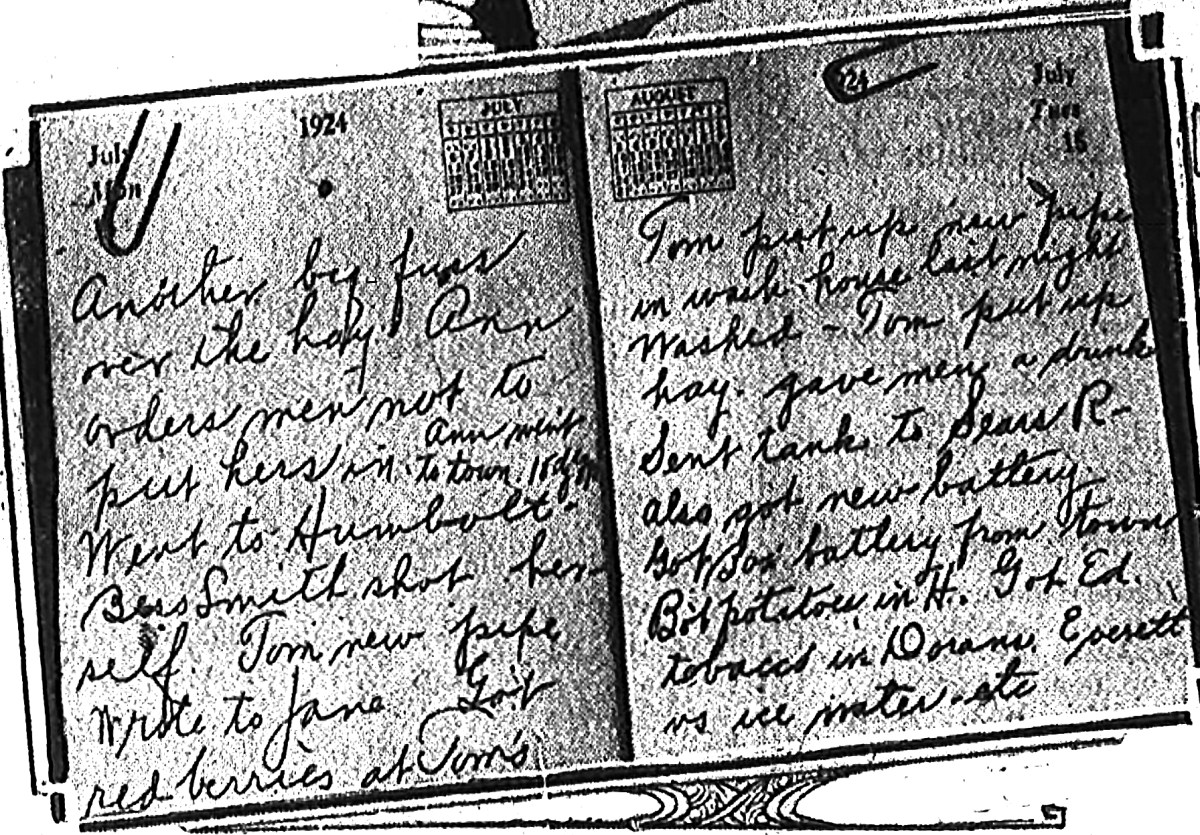 July
Mon
1924
JULY
Another big fuss
over the hay. Ann
orders men not to
put hers in. Ann went
to town
Went to Humbolt.
Bess Smith shot her-
self. Tom new pipe
Wrote to Jane Got
red berries at Tom's
AUGUST
1924
July
Tues
15
Tom put up new pipe
in wash house last night
Washed - Tom put up
hay. gave men a drink
Sent tank to Sears R-
also got new battery.
Got battery from town
Bot potatoes in H. Got Ed.
tobacco in Dorans. Everett
vs ice water - etc